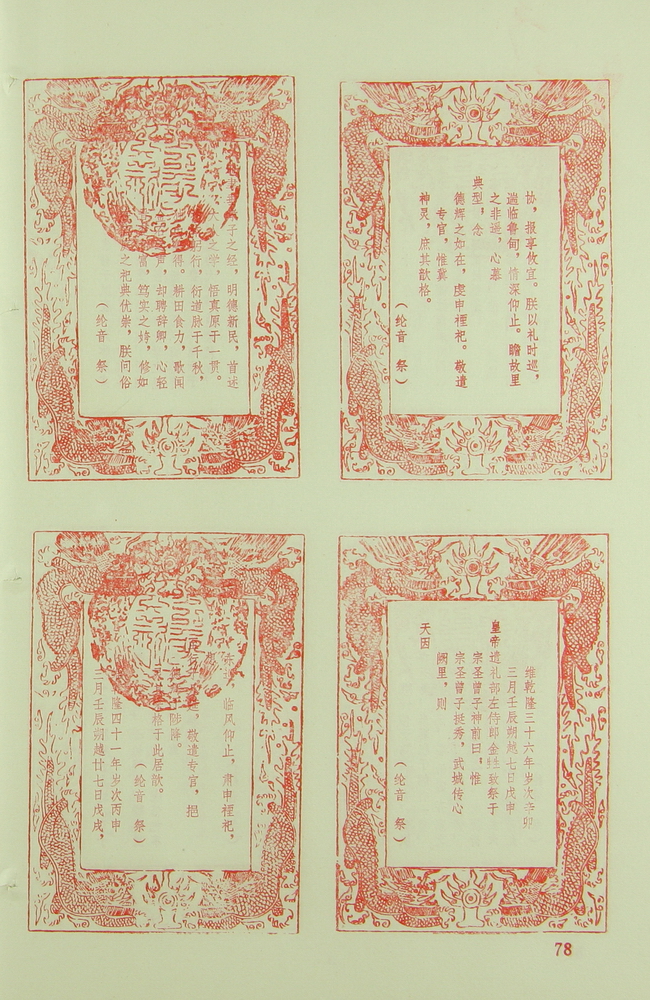 协，报享攸宜。朕以礼时巡，
遄临鲁甸，情深仰止。瞻故里
之非遥，心慕
典型，念
德辉之如在，虔申禋祀。敬遣
专官，惟冀
神灵，庶其歆格。
（纶音 祭）
子之经，明德新民，首述
之学，悟真原于一贯。
行，衍道脉于千秋，
得。耕田食力，歌闻
声，却聘辞卿，心轻
富，笃实之 ，修如
之祀典优崇，朕问俗
（纶音 祭）
维乾隆三十六年岁次辛卯
三月壬辰朔越七日戊申
皇帝遣礼部左侍郎金甡致祭于
宗圣曾子神前曰，惟
宗圣曾子挺秀，武城传心
阙里，则
天因
（纶音 祭）
，临风仰止，肃申禋祀，
，敬遣专官，挹
陟降。
格于此居歆。
（纶音 祭）
隆四十一年岁次丙申
三月壬辰朔越廿七日戊戌，
78